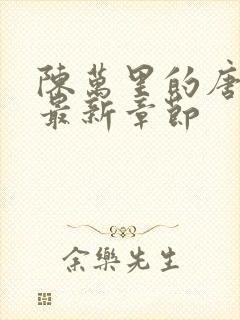 陳萬里的唐
最新章節
余樂先生